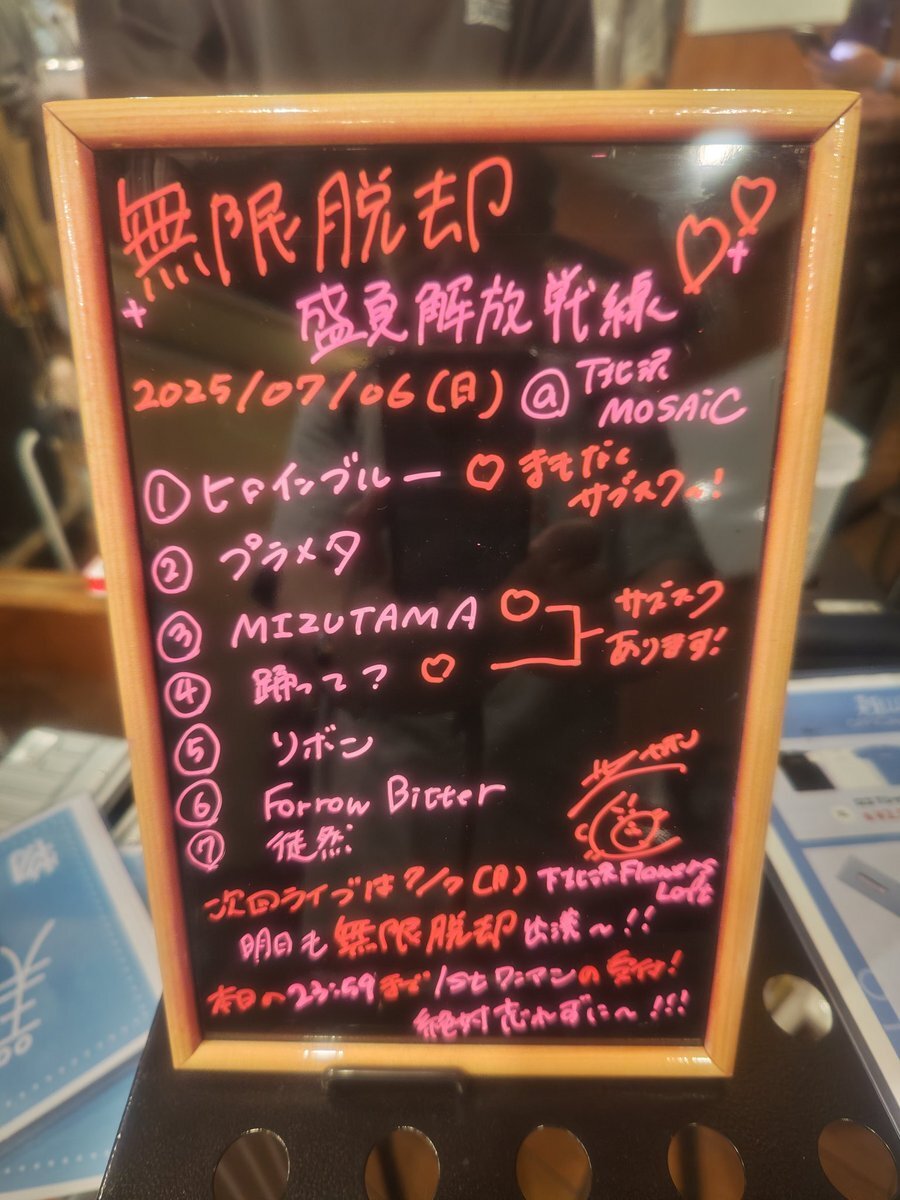 無限脱却
盛夏解放戦線
2025/07/06(日) @下北沢
MOSAiC
① ヒロインブルー ♡ まもなく
サブスクへ!
② プラメタ
③ MIZUTAMA ♡
④ 踊って? ♡
サブスク
あります!
⑤ リボン
⑥ Forrow Bitter
⑦ 徒然
次回ライブは7/7(月) 下北沢Flowers
Loft
明日も無限脱却出演〜!!
本日〜23:59まで 1stワンマンの受付!
絶対忘れずに〜!!!